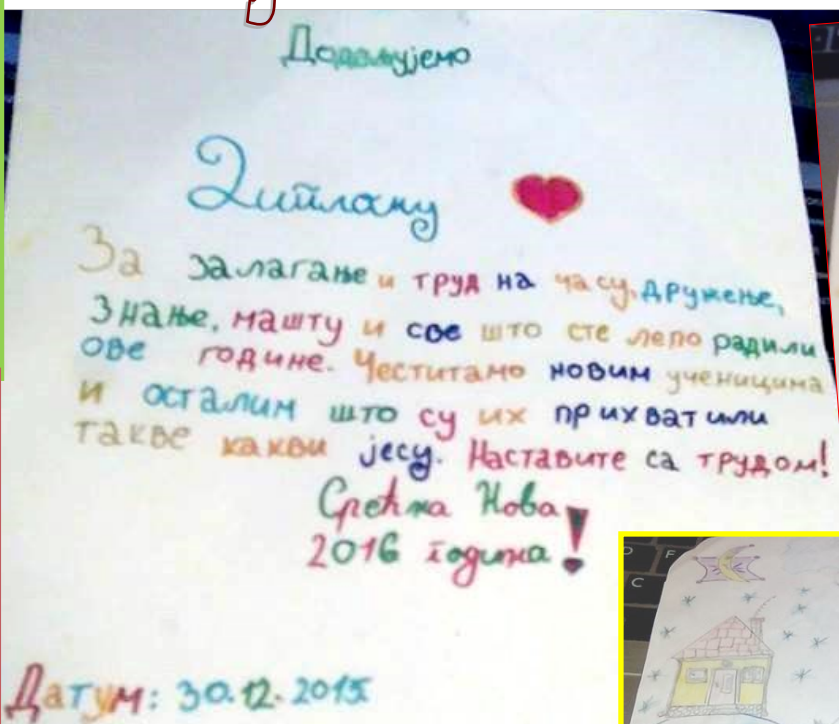 Додељујемо
Диплому
За залагање и труд на часу, дружење,
знање, машту и све што сте лепо радили
ове године. Честитамо новим ученицима
и осталим што су их прихватили
такве какви јесу. Наставите са трудом!
Срећна Нова
2016 година!
Датум: 30.12.2015